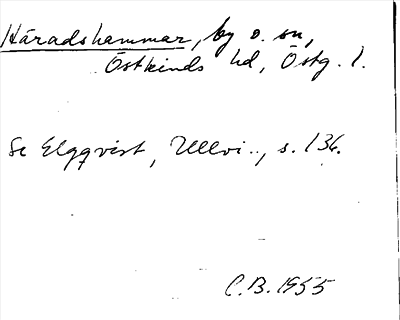 Häradshammar, by o. sn,
Östkinds hd, Östg. l.
Se Elgqvist, Ullvi.., s. 136.
C.B. 1955